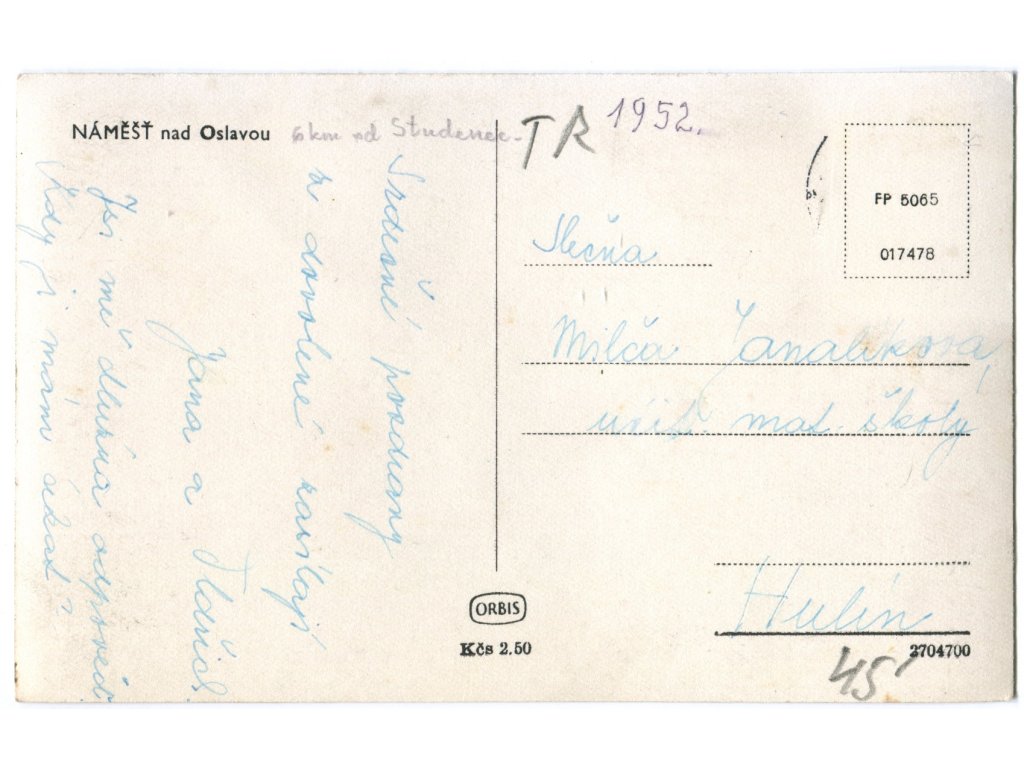 NÁMĚŠŤ nad Oslavou 6 km od Studenec.
Srdečné pozdravy
z dovolené zasílají
Jana a Oldřich
Jsi mě dlužna odpověď.
Kdy ji mám čekat?
TR 1952.
FP 5065
017478
Slečna
Milča
učit. mat. školy
Hulín
ORBIS
Kčs 2.50
2704700
45